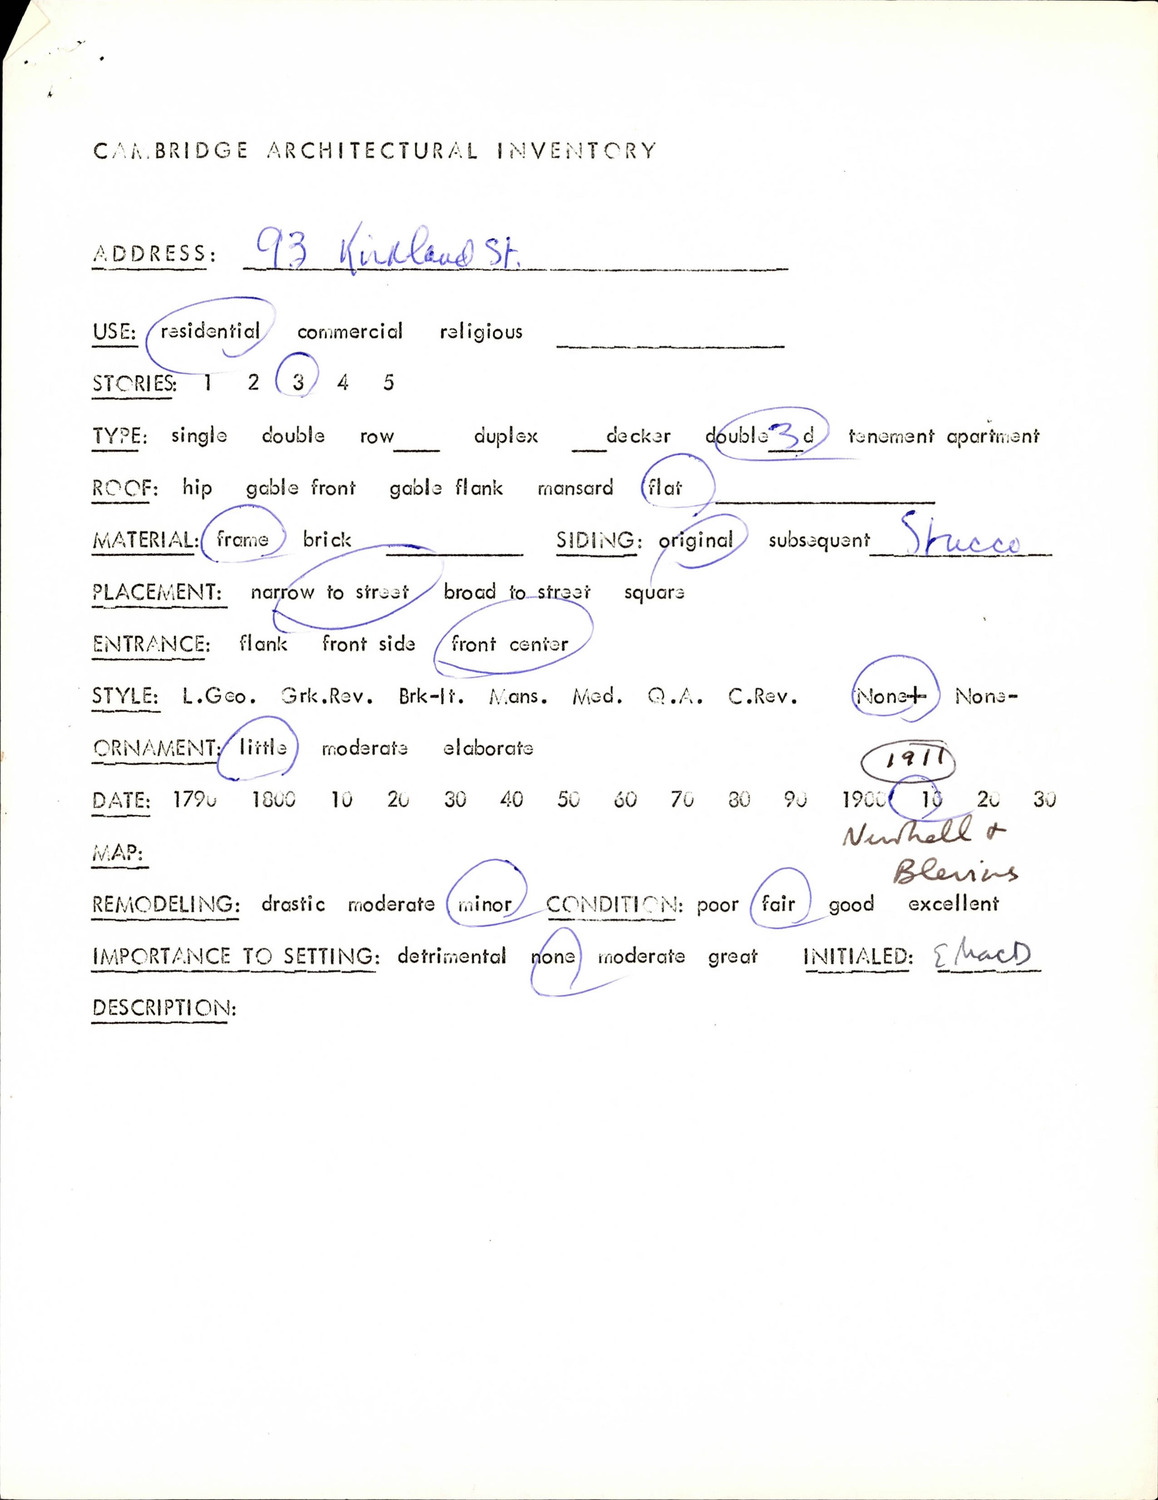 CAMBRIDGE ARCHITECTURAL INVENTORY
ADDRESS: 93 Kirkland St.
USE: residential commercial religious
STORIES: 1 2 3 4 5
TYPE: single double row duplex decker double 3 d tenement apartment
ROOF: hip gable front gable flank mansard flat
MATERIAL: frame brick SIDING: original subsequent Stucco
PLACEMENT: narrow to street broad to street square
ENTRANCE: flank front side front center
STYLE: L.Geo. Grk.Rev. Brk-It. Mans. Med. Q.A. C.Rev. None+ None-
ORNAMENT: little moderate elaborate 1911
DATE: 1790 1800 10 20 30 40 50 60 70 80 90 1900 10 20 30
MAP: Newhall &
Blevins
REMODELING: drastic moderate minor CONDITION: poor fair good excellent
IMPORTANCE TO SETTING: detrimental none moderate great INITIALED: E MacD
DESCRIPTION: